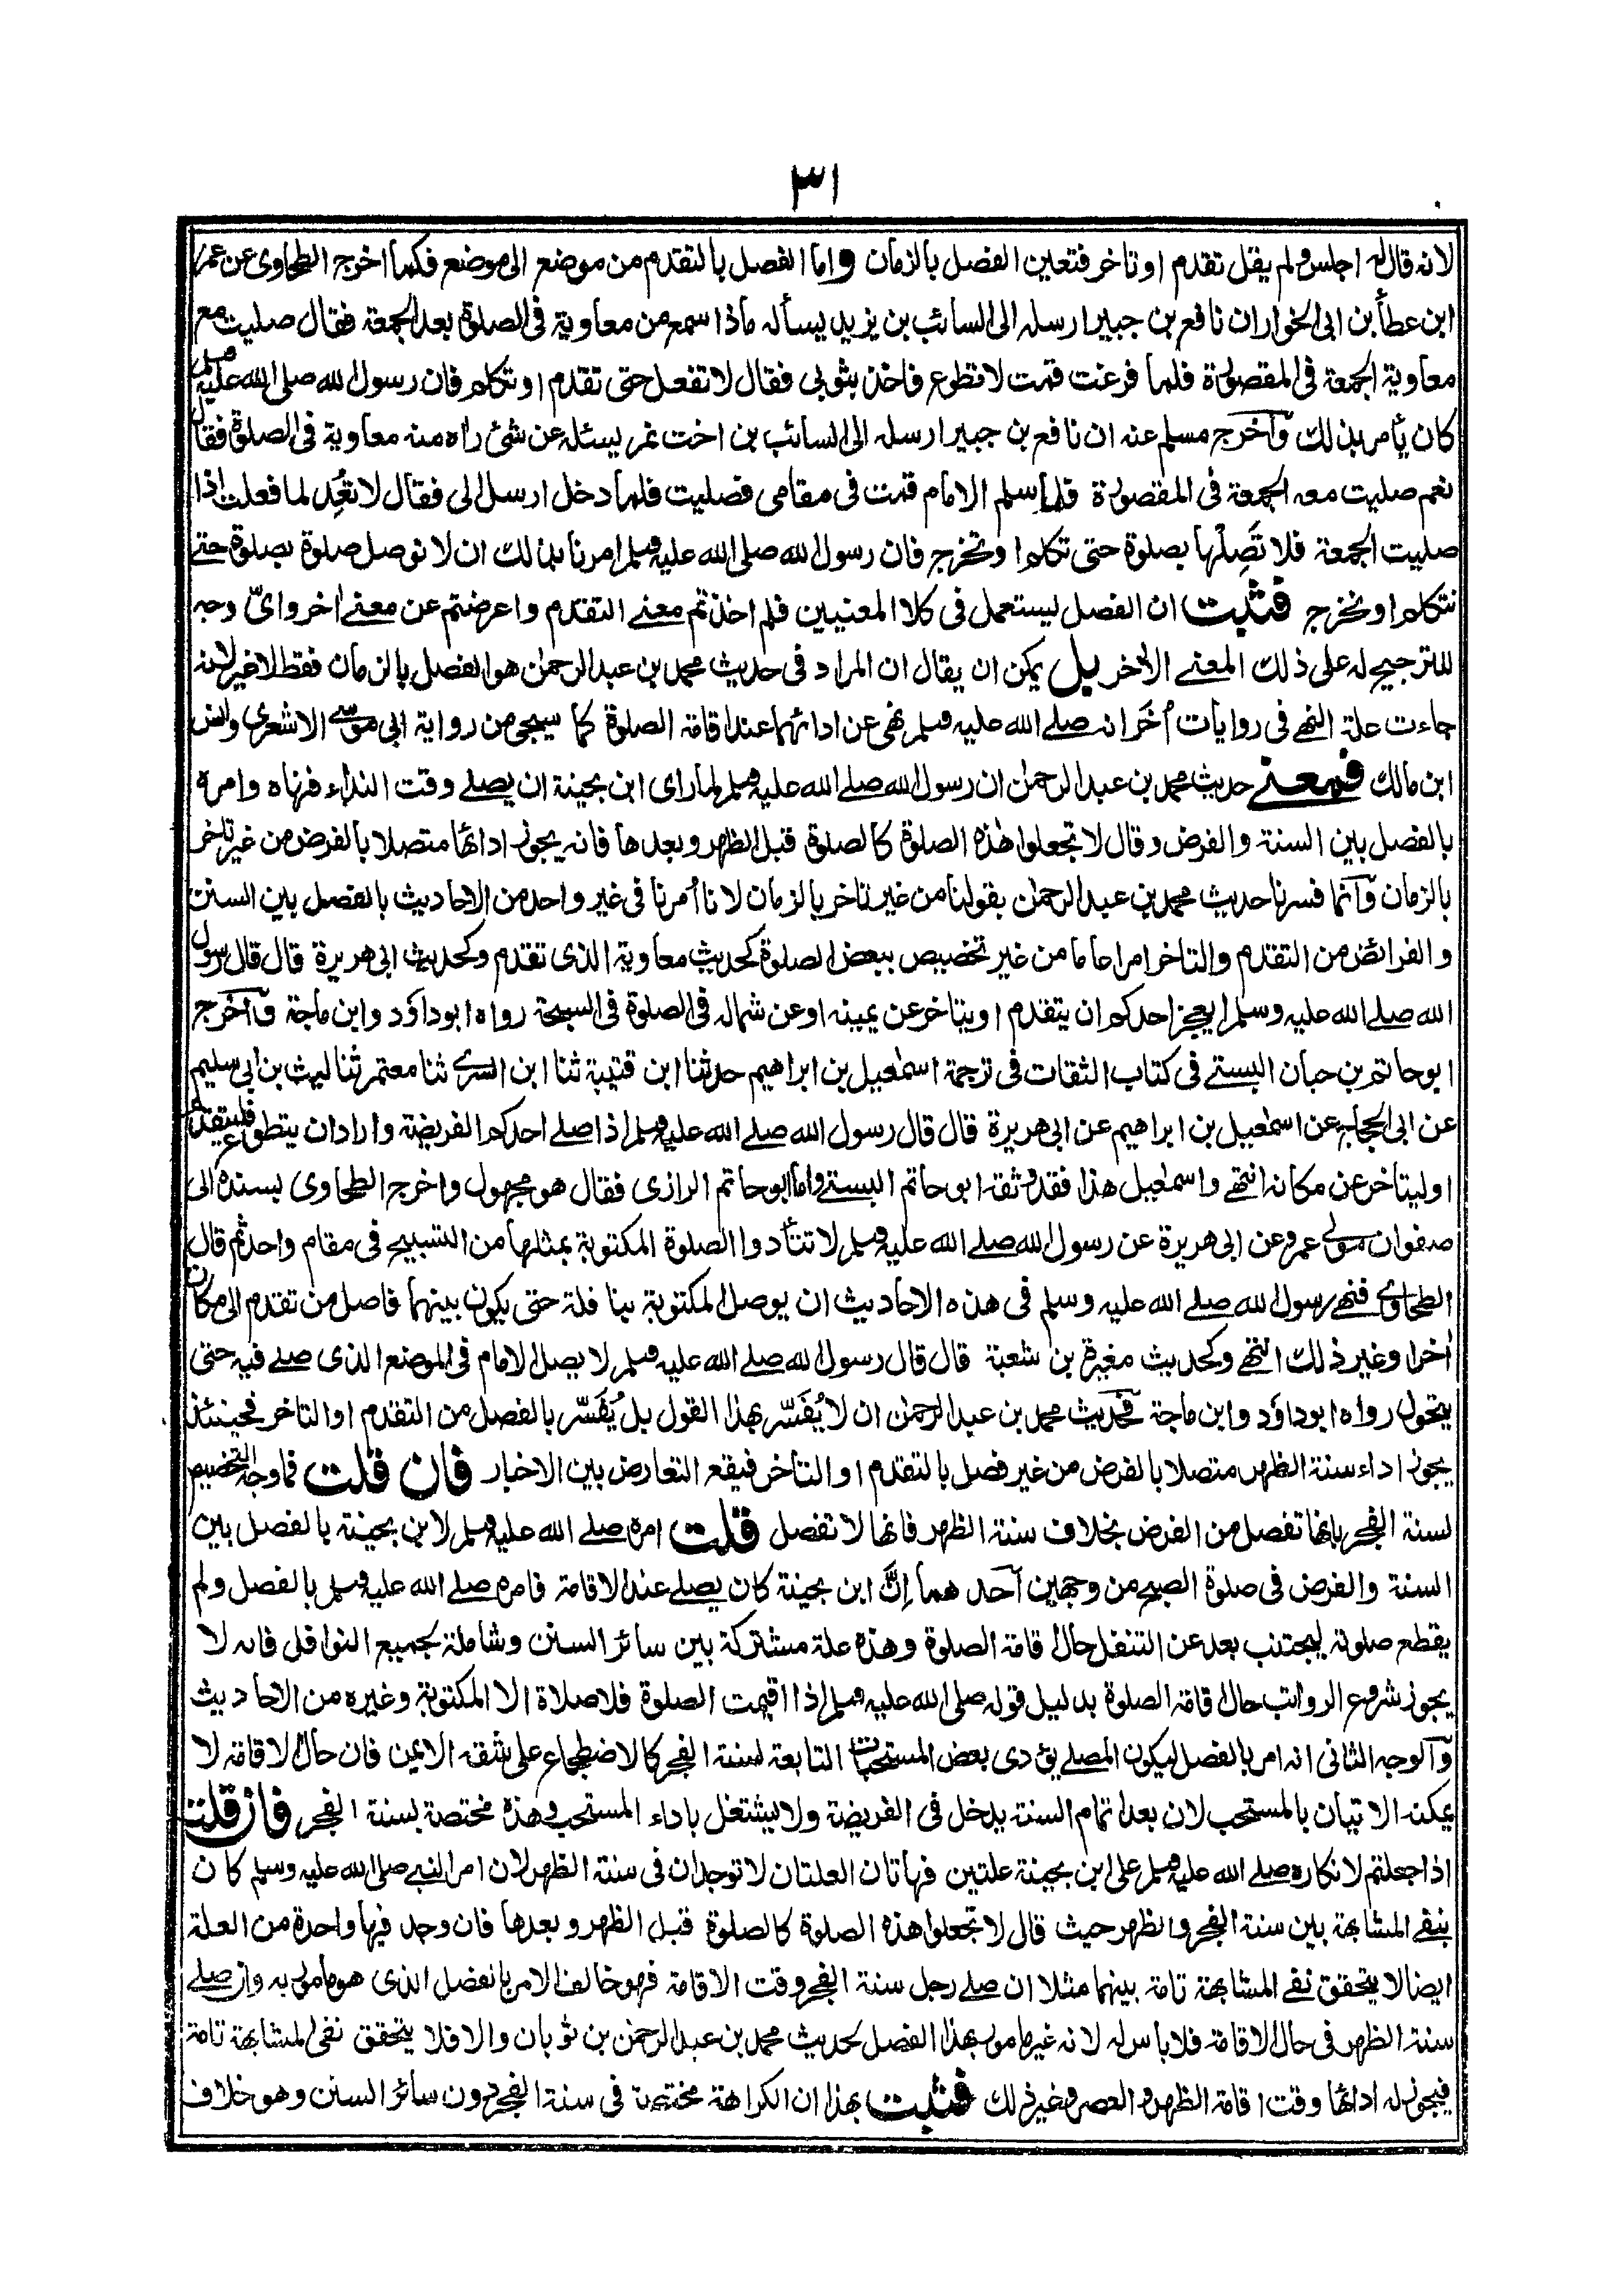 ٣١
لانه قال له اجلس ولم يقل تقدم او تاخر فتعين الفصل بالزمان واما الفصل بالتقدم من موضع الى موضع فكما اخرج الطحاوى عن عمر
ابن عطأ بن ابى الخوار ان نافع بن جبير ارسله الى السائب بن يزيد يسأله ماذا سمع من معاوية فى الصلوة بعد الجمعة فقال صليت مع
معاوية الجمعة فى المقصورة فلما فرغت قمت لاتطوع فاخذ بثوبى فقال لا تفعل حتى تقدم او تتكلم فان رسول الله صلى الله عليه وسلم
كان يأمر بذلك وآخرج مسلم عنه ان نافع بن جبير ارسله الى السائب بن اخت نمر يسئله عن شئ راه منه معاوية فى الصلوة فقال
نعم صليت معه الجمعة فى المقصورة فلما سلم الامام قمت فى مقامى فصليت فلما دخل ارسل الى فقال لا تعُد لما فعلت اذا
صليت الجمعة فلا تَصِلها بصلوة حتى تكلم او تخرج فان رسول الله صلى الله عليه وسلم امرنا بذالك ان لا نوصل صلوة بصلوة حتے
نتكلم او نخرج فثبت ان الفصل يستعمل فى كلا المعنيين فلم اخذتم معنے التقدم واعرضتم عن معنے اخر واىّ وجه
للترجيح له على ذلك المعنے الاخر بل يمكن ان يقال ان المراد فى حديث محمد بن عبد الرحمٰن هو الفصل بالزمان فقط لا غير لانه
جاءت علة النهے فى روايات اُخَر انه صلے الله عليه وسلم نهى عن ادائهما عند اقامة الصلوة كما سيجئ من رواية ابى موسے الاشعرى وانس
ابن مالك فمعنے حديث محمد بن عبد الرحمٰن ان رسول الله صلے الله عليه وسلم لما راى ابن بحينة ان يصلے وقت النداء فنهاه وامره
بالفصل بين السنة والفرض وقال لا تجعلوا هٰذه الصلوة كالصلوة قبل الظهر وبعدها فانه يجوز ادائها متصلا بالفرض من غير تاخر
بالزمان وآنما فسرنا حديث محمد بن عبد الرحمٰن بقولنا من غير تاخر بالزمان لانا اُمرنا فى غير واحد من الاحاديث بالفصل بين السنن
والفرائض من التقدم والتاخر امرا عاما من غير تخصيص ببعض الصلوة كحديث معاوية الذى تقدم وكحديث ابى هريرة قال قال رسول
الله صلے الله عليه وسلم ايعجز احدكم ان يتقدم او يتاخر عن يمينه او عن شماله فى الصلوة فى السبحة رواه ابو داؤد وابن ماجة وآخرج
ابو حاتم بن حبان البستے فى كتاب الثقات فى ترجمة اسمٰعيل بن ابراهيم حدثنا ابن قتيبة ثنا ابن السرے ثنا معتمر ثنا ليث بن ابى سليم
عن ابى الحجاج عن اسمٰعيل بن ابراهيم عن ابى هريرة قال قال رسول الله صلے الله عليه وسلم اذا صلے احدكم الفريضة واراد ان يتطوع فليتقدم
او ليتاخر عن مكانه انتهے واسمٰعيل هذا فقد وثقه ابو حاتم البستے واما ابو حاتم الرازى فقال هو مجهول واخرج الطحاوى بسنده الى
صفوان مولے عمرو عن ابى هريرة عن رسول الله صلے الله عليه وسلم لا تتأدوا الصلوة المكتوبة بمثلها من التسبيح فى مقام واحد ثم قال
الطحاوے فنهے رسول الله صلے الله عليه وسلم فى هذه الاحاديث ان يوصل المكتوبة بنافلة حتى يكون بينهما فاصل من تقدم الى مكان
اٰخر او غير ذلك انتهے وكحديث مغيرة بن شعبة قال قال رسول الله صلے الله عليه وسلم لا يصل الامام فى الموضع الذى صلے فيه حتى
يتحول رواه ابو داؤد وابن ماجة فحديث محمد بن عبد الرحمٰن ان لا يُفَسّر بهذا القول بل يُفَسّر بالفصل من التقدم او التاخر فحينئذ
يجوز اداء سنة الظهر متصلا بالفرض من غير فصل بالتقدم او التأخر فيقع التعارض بين الاخبار فان قلت فما وجه التخصيص
لسنة الفجر بانها تفصل من الفرض بخلاف سنة الظهر فانها لا تفصل قلت امره صلے الله عليه وسلم لابن بحينة بالفصل بين
السنة والفرض فى صلوة الصبح من وجهين آحدهما اِنَّ ابن بحينة كان يصلے عند الاقامة فامره صلے الله عليه وسلم بالفصل ولم
يقطع صلوته ليجتنب بعد عن التنفل حال اقامة الصلوة وهذه علة مشتركة بين سائر السنن وشاملة بجميع النوافل فانه لا
يجوز شروع الرواتب حال اقامة الصلوة بدليل قوله صلى الله عليه وسلم اذا اقيمت الصلوة فلا صلاة الا المكتوبة وغيره من الاحاديث
وآلوجه الثانى انه امر بالفصل ليكون المصلے يؤدى بعض المستحبات التابعة لسنة الفجر كالاضطجاع على شقه الايمن فان حال الاقامة لا
يمكنه الاتيان بالمستحب لان بعد اتمام السنة يدخل فى الفريضة ولا يشتغل باداء المستحب وهذه مختصة بسنة الفجر فان قلت
اذا جعلتم لانكاره صلے الله عليه وسلم على ابن بحينة علتين فهاتان العلتان لا توجدان فى سنة الظهر لان امر النبے صلى الله عليه وسلم كان
بنفے المشابهة بين سنة الفجر والظهر حيث قال لا تجعلوا هذه الصلوة كالصلوة قبل الظهر وبعدها فان وجد فيها واحدة من العلة
ايضا لا يتحقق نفے المشابهة تامة بينهما مثلا ان صلے رجل سنة الفجر وقت الاقامة فهو خالف الامر بالفصل الذى هو مامور به وان صلے
سنة الظهر فى حال الاقامة فلا باس له لانه غير مامور بهذا الفصل لحديث محمد بن عبد الرحمٰن بن ثوبان والا فلا يتحقق نفى المشابهة تامة
فيجوز له ادائها وقت اقامة الظهر والعصر وغير ذلك فثبت بهذا ان الكراهة مختصة فى سنة الفجر دون سائر السنن وهو خلاف